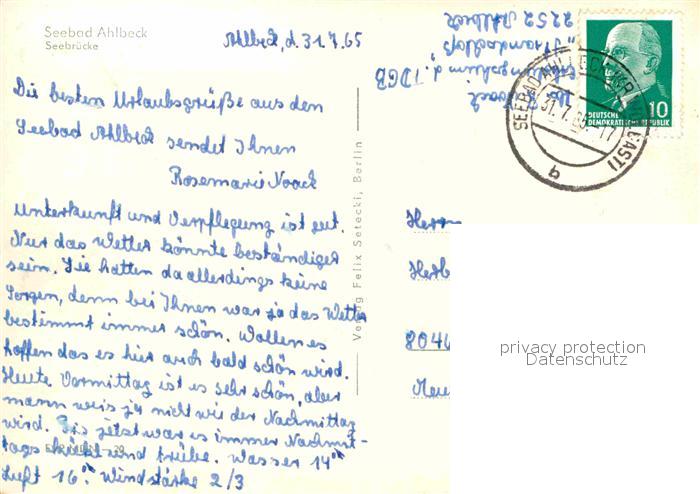 Seebad Ahlbeck
Seebrücke
Ahlbeck, d. 31.7.65
Die besten Urlaubsgrüße aus dem
Seebad Ahlbeck sendet Ihnen
Rosemarie Noack
Unterkunft und Verpflegung ist gut.
Nur das Wetter könnte beständiger
sein. Sie hatten da allerdings keine
Sorgen, denn bei Ihnen war ja das Wetter
bestimmt immer schön. Wollen es
hoffen das es hier auch bald schön wird.
Heute Vormittag ist es sehr schön, aber
mann weis ja nicht wie der Nachmittag
wird. Bis jetzt war es immer Nachmit-
tags kühl und trübe. Wasser 14°
Luft 16° Windstärke 2/3
Verlag Felix Setecki, Berlin
Noack
d. FDGB
"Strandschloß"
2252 Ahlbeck
10
DEUTSCHE
DEMOKRATISCHE REPUBLIK
SEEBAD AHLBECK
31.7.65-17
a
Herrn
Herb
8046
privacy protection
Datenschutz